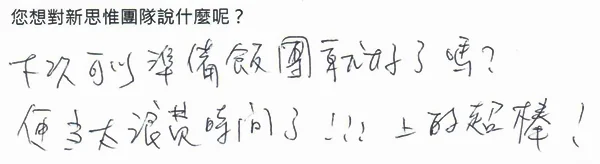 您想對新思惟團隊說什麼呢？
下次可以準備飯團就好了嗎？
便当太浪费時间了!!! 上的超棒！